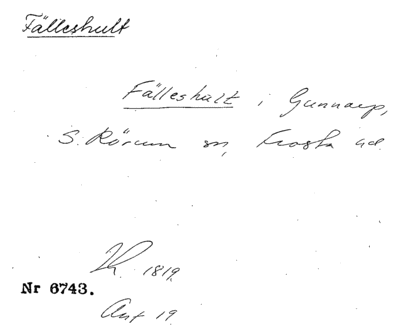 Fälleshult
Fälleshult i Gunnarp,
S. Rörum sn, Frosta hd.
1819.
Nr 6743.
19